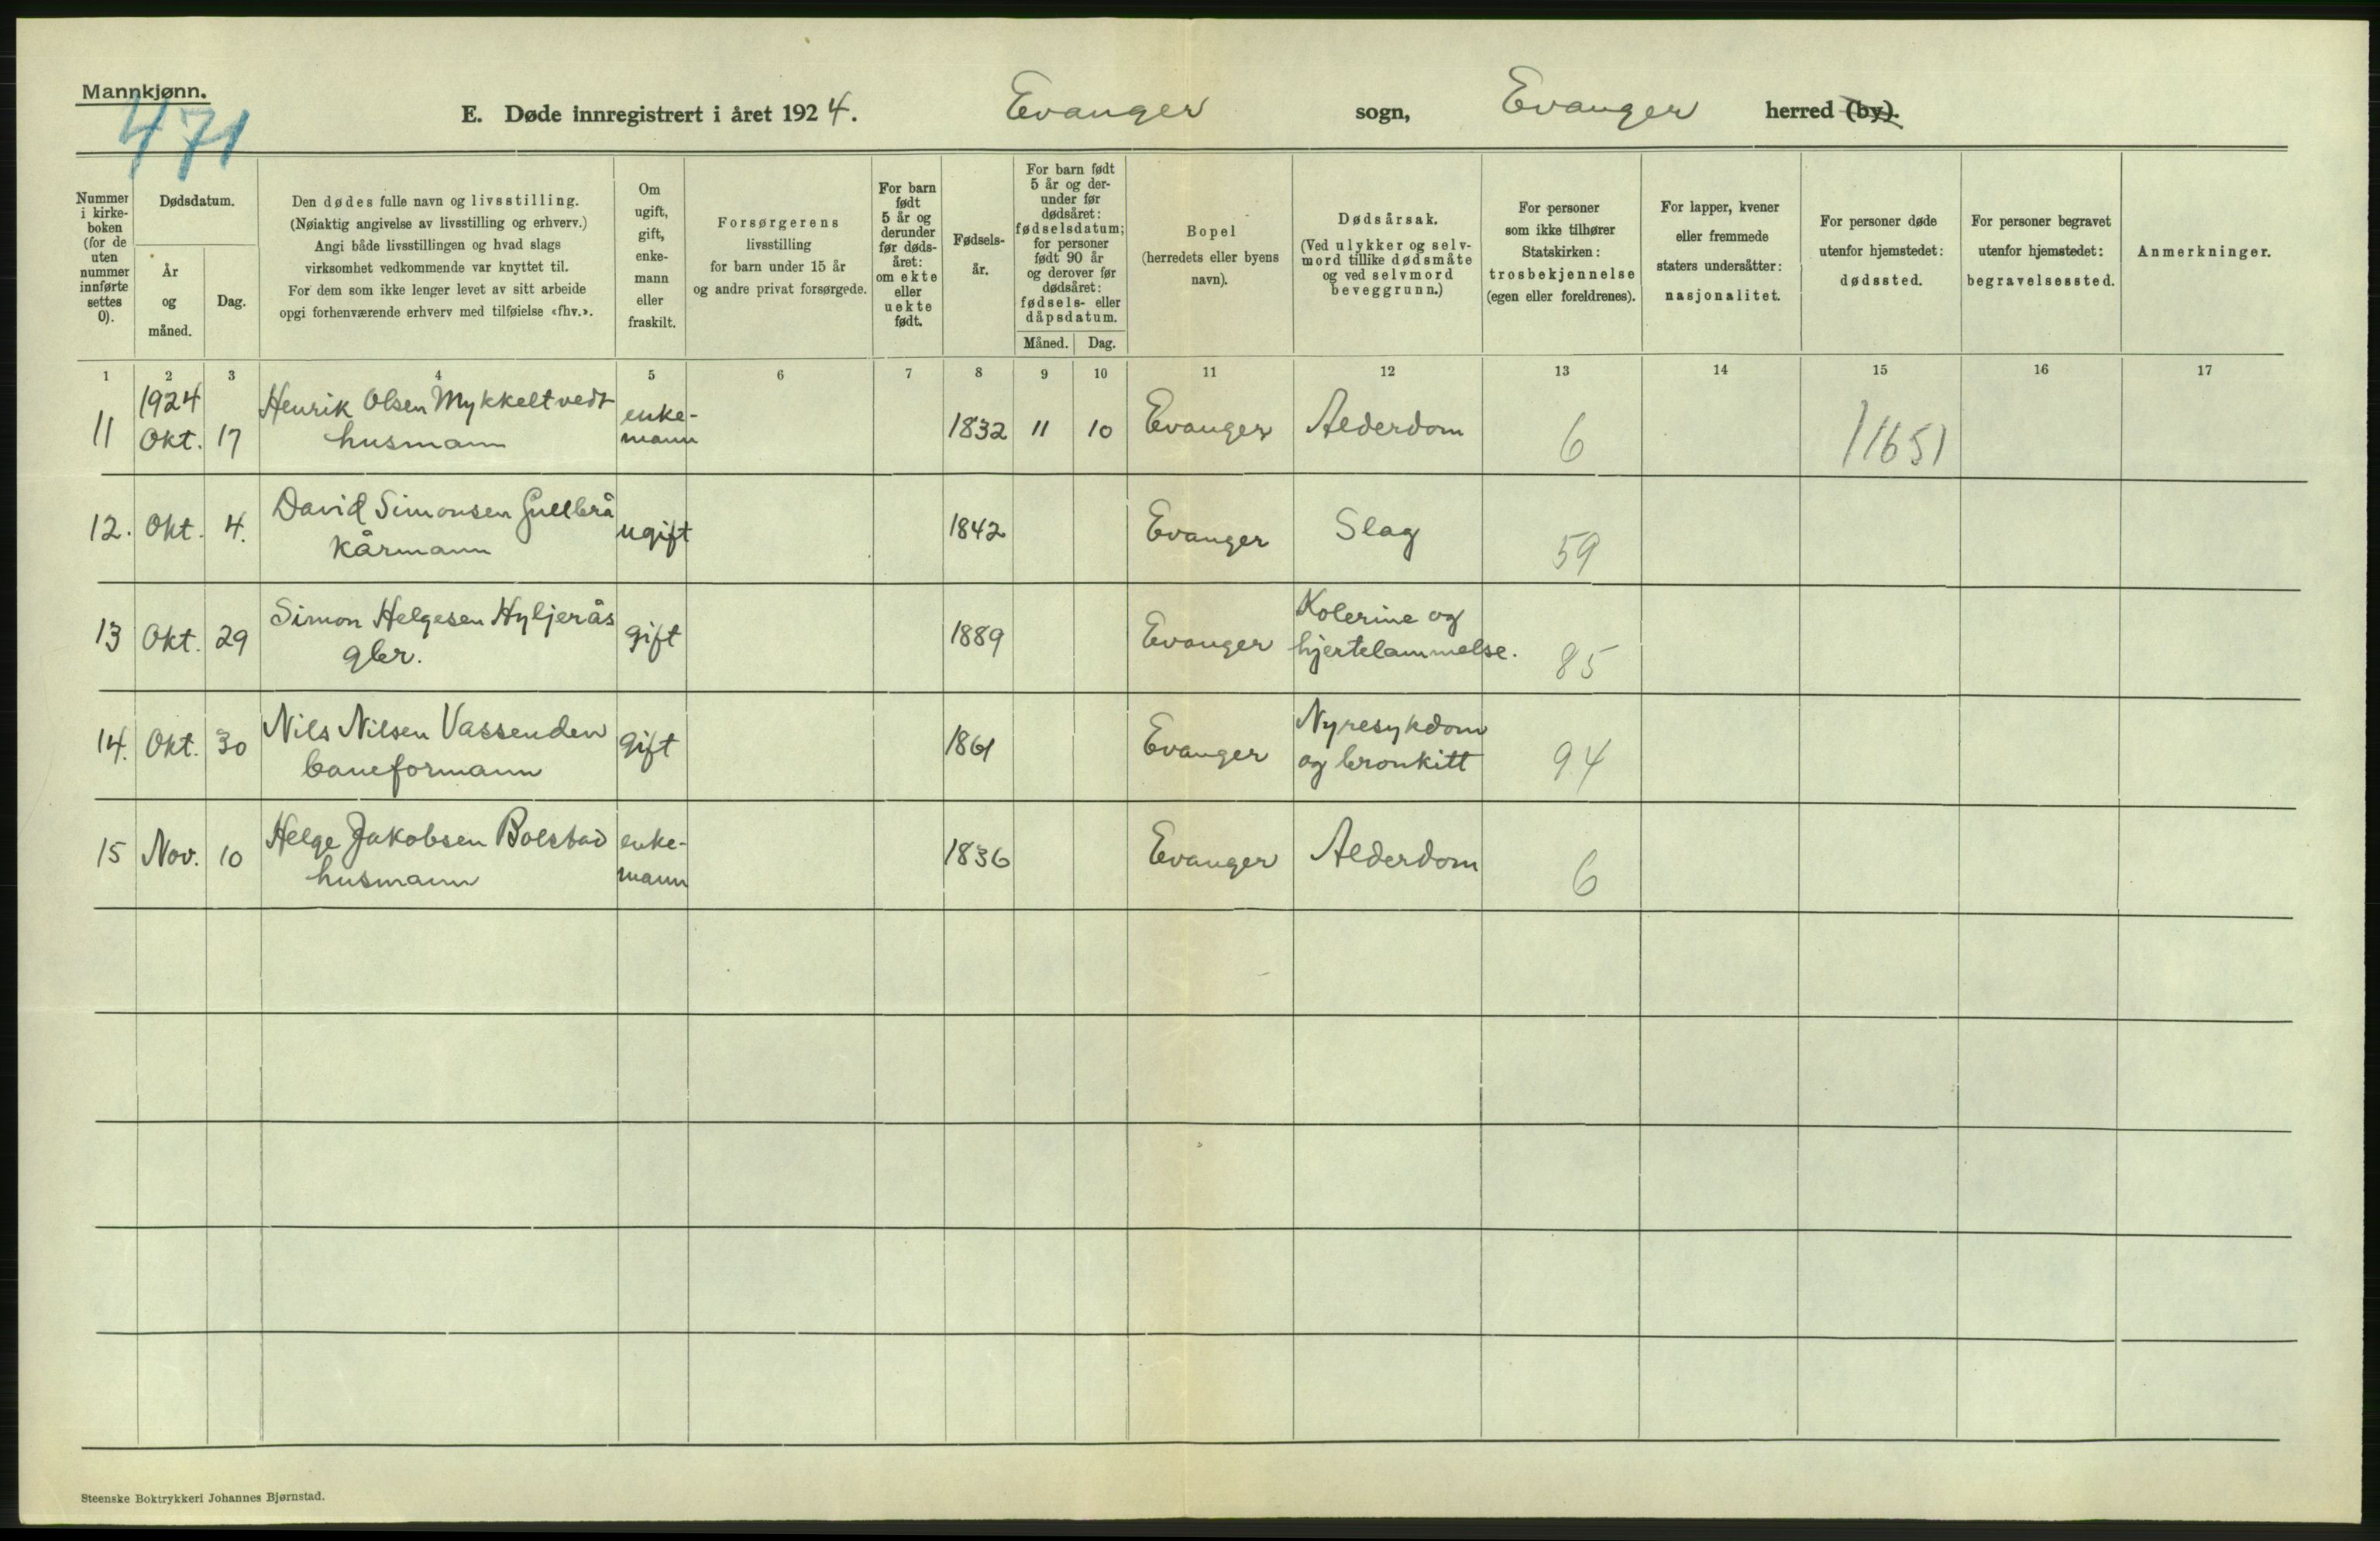 Mannkjønn.
471
E. Døde innregistrert i året 1924. Evanger sogn, Evanger herred (by).
Nummer i kirke-boken (for de uten nummer innførte settes 0).
Dødsdatum.
År og måned.
Dag.
Den dødes fulle navn og livsstilling.
(Nøiaktig angivelse av livsstilling og erhverv.)
Angi både livsstillingen og hvad slags
virksomhet vedkommende var knyttet til.
For dem som ikke lenger levet av sitt arbeide
opgi forhenværende erhverv med tilføielse «fhv.».
Om ugift, gift, enke-mann eller fraskilt.
Forsørgerens
livsstilling
for barn under 15 år
og andre privat forsørgede.
For barn født 5 år og derunder før døds-året: om ekte eller uekte født.
Fødsels-år.
For barn født 5 år og der-under før dødsåret: fødselsdatum; for personer født 90 år og derover før dødsåret: fødsels- eller dåpsdatum.
Måned. Dag.
Bopel
(herredets eller byens
navn).
Dødsårsak.
(Ved ulykker og selv-mord tillike dødsmåte og ved selvmord beveggrunn.)
For personer
som ikke tilhører
Statskirken:
trosbekjennelse
(egen eller foreldrenes).
For lapper, kvener
eller fremmede
staters undersåtter:
nasjonalitet.
For personer døde
utenfor hjemstedet:
dødssted.
For personer begravet
utenfor hjemstedet:
begravelsessted.
Anmerkninger.
1 2 3 4 5 6 7 8 9 10 11 12 13 14 15 16 17
1924 Henrik Olsen Mykkeltvedt enke-
11 Okt. 17 husmann mann 1832 11 10 Evanger Alderdom 6 11651
David Simonsen Gullbrå
12. Okt. 4. kårmann ugift 1842 Evanger Slag 59
Simon Helgesen Hyljerås Kolerine og
13 Okt. 29 gbr. gift 1889 Evanger hjertelammelse. 85
Nils Nilsen Vassenden Nyresykdom
14. Okt. 30 baneformann gift 1861 Evanger og bronkitt 94
Helge Jakobsen Bolstad enke-
15 Nov. 10 husmann mann 1836 Evanger Alderdom 6
Steenske Boktrykkeri Johannes Bjørnstad.